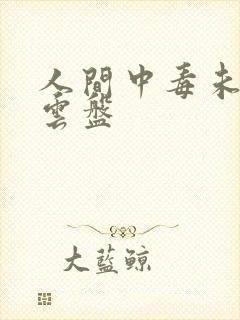 人間中毒未
雲盤
大藍鯨